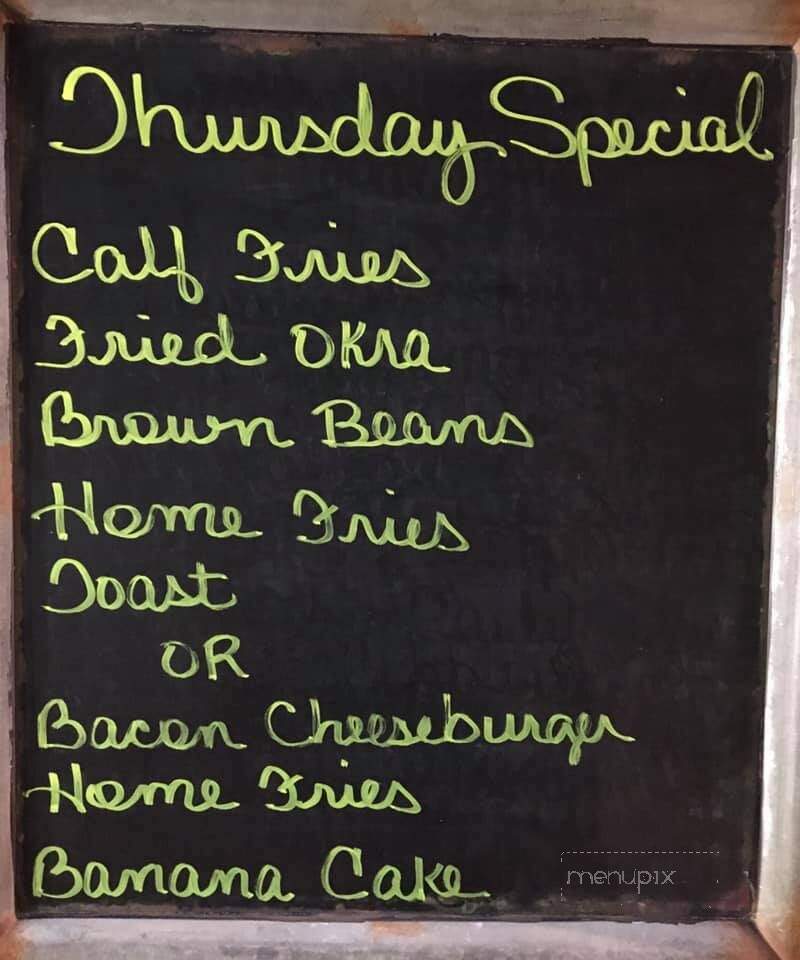 Thursday Special
Calf Fries
Fried OKra
Brown Beans
Home Fries
Toast
OR
Bacon Cheeseburger
Home Fries
Banana Cake
menupix